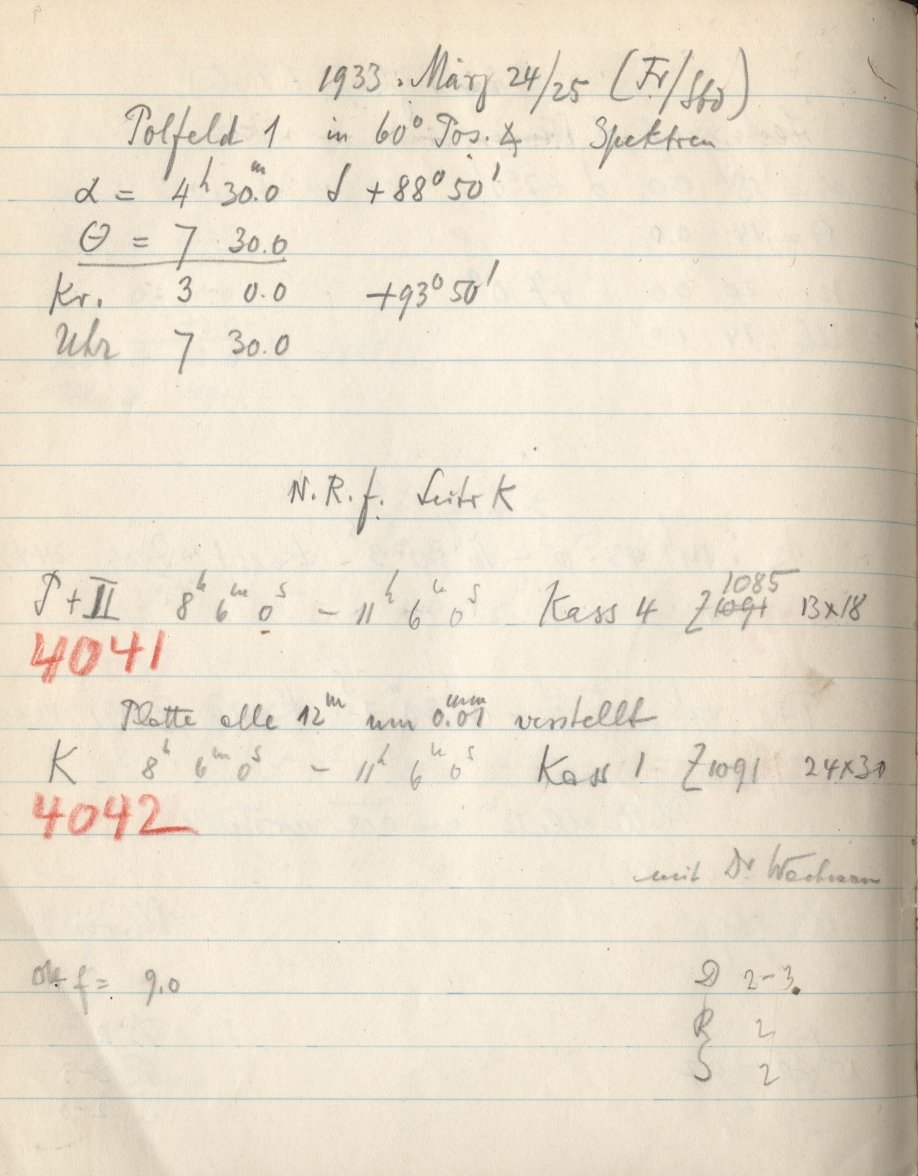 1933. März 24/25 (Fr/Sbd)
Polfeld 1 in 60° Pos. ∡ Spektren
α = 4ʰ 30.ᵐ0 δ +88° 50'
Θ = 7 30.0
Kr. 3 0.0 +93° 50'
Uhr 7 30.0
N.R.f. Seite K
P + II 8ʰ 6ᵐ 0ˢ – 11ʰ 6ᵐ 0ˢ Kass 4 Z 1091 1085 13x18
4041
Platte alle 12ᵐ um 0.01ᵐᵐ verstellt
K 8ʰ 6ᵐ 0ˢ – 11ʰ 6ᵐ 0ˢ Kass 1 Z 1091 24x30
4042
mit Dr Wachmann
f = 9.0 D 2-3
R 2
S 2